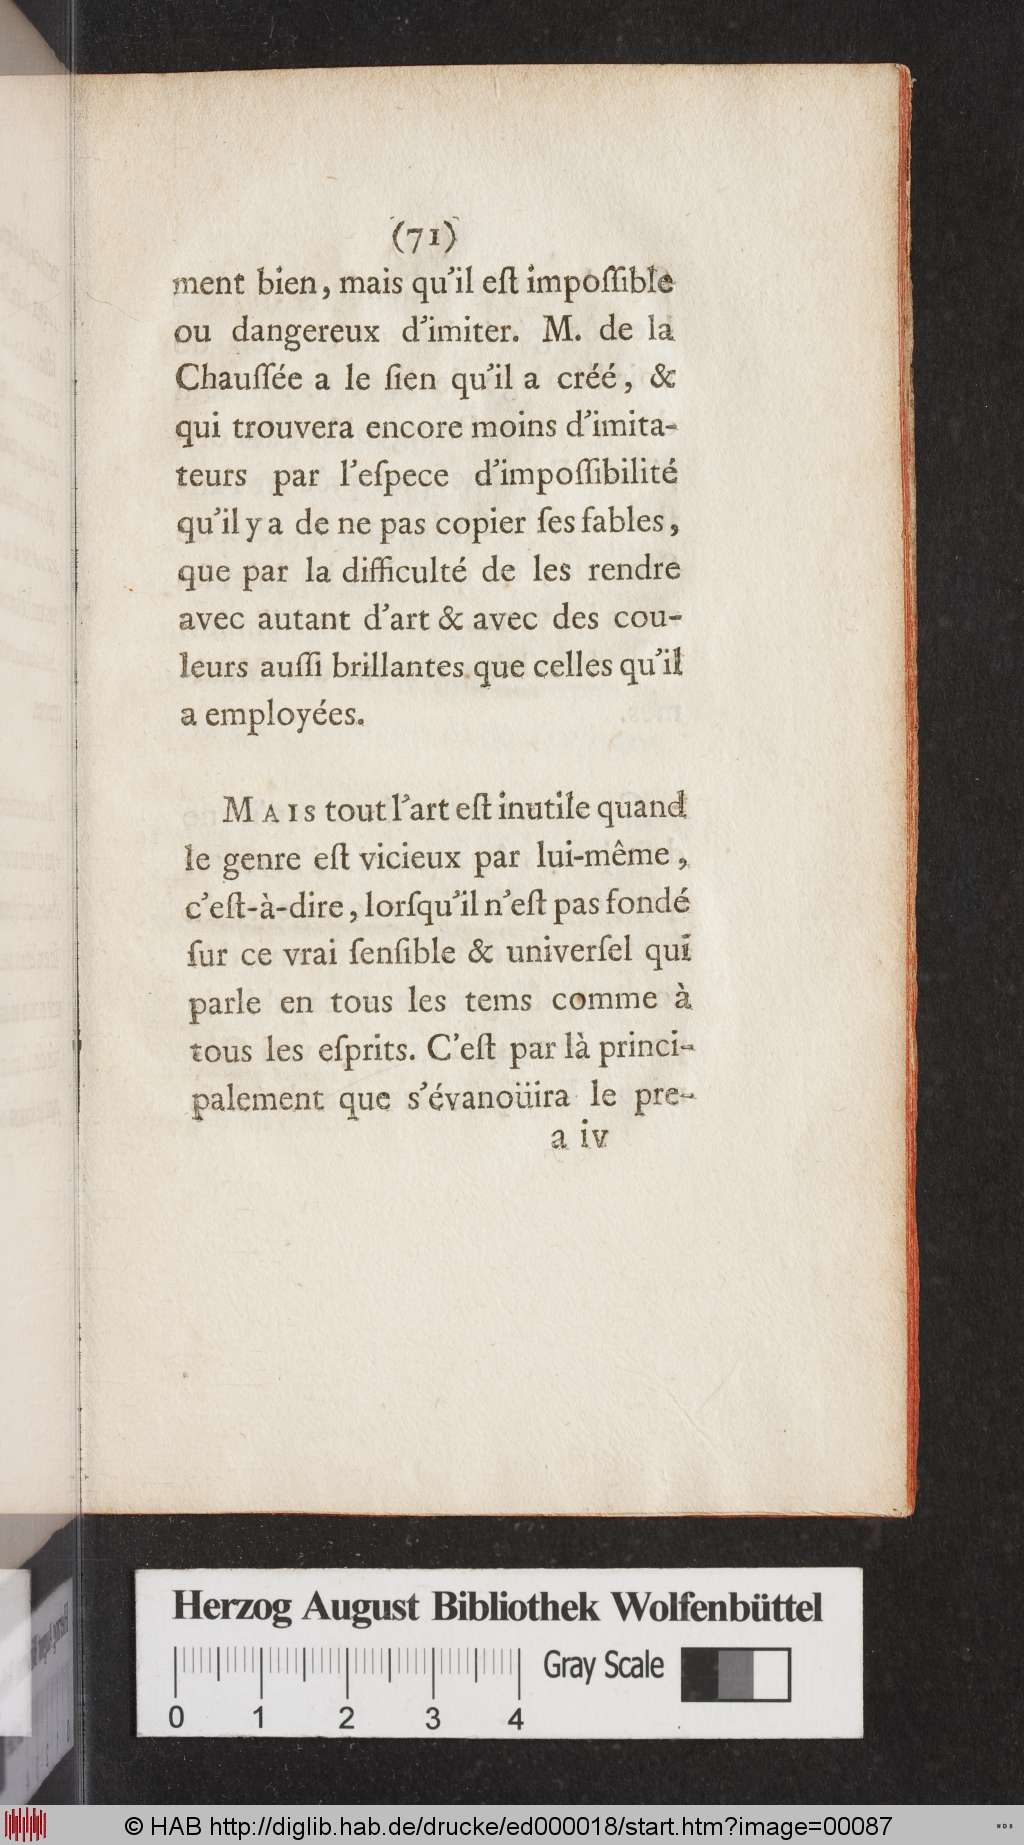 (71)
ment bien, mais qu'il eſt impoſſible
ou dangereux d'imiter. M. de la
Chauſſée a le ſien qu'il a créé, &
qui trouvera encore moins d'imita-
teurs par l'eſpece d'impoſſibilité
qu'il y a de ne pas copier ſes fables,
que par la difficulté de les rendre
avec autant d'art & avec des cou-
leurs auſſi brillantes que celles qu'il
a employées.
MAIS tout l'art eſt inutile quand
le genre eſt vicieux par lui-même,
c'eſt-à-dire, lorſqu'il n'eſt pas fondé
ſur ce vrai ſenſible & univerſel qui
parle en tous les tems comme à
tous les eſprits. C'eſt par là princi-
palement que s'évanoüira le pre-
a iv
Herzog August Bibliothek Wolfenbüttel
0 1 2 3 4
Gray Scale
© HAB http://diglib.hab.de/drucke/ed000018/start.htm?image=00087